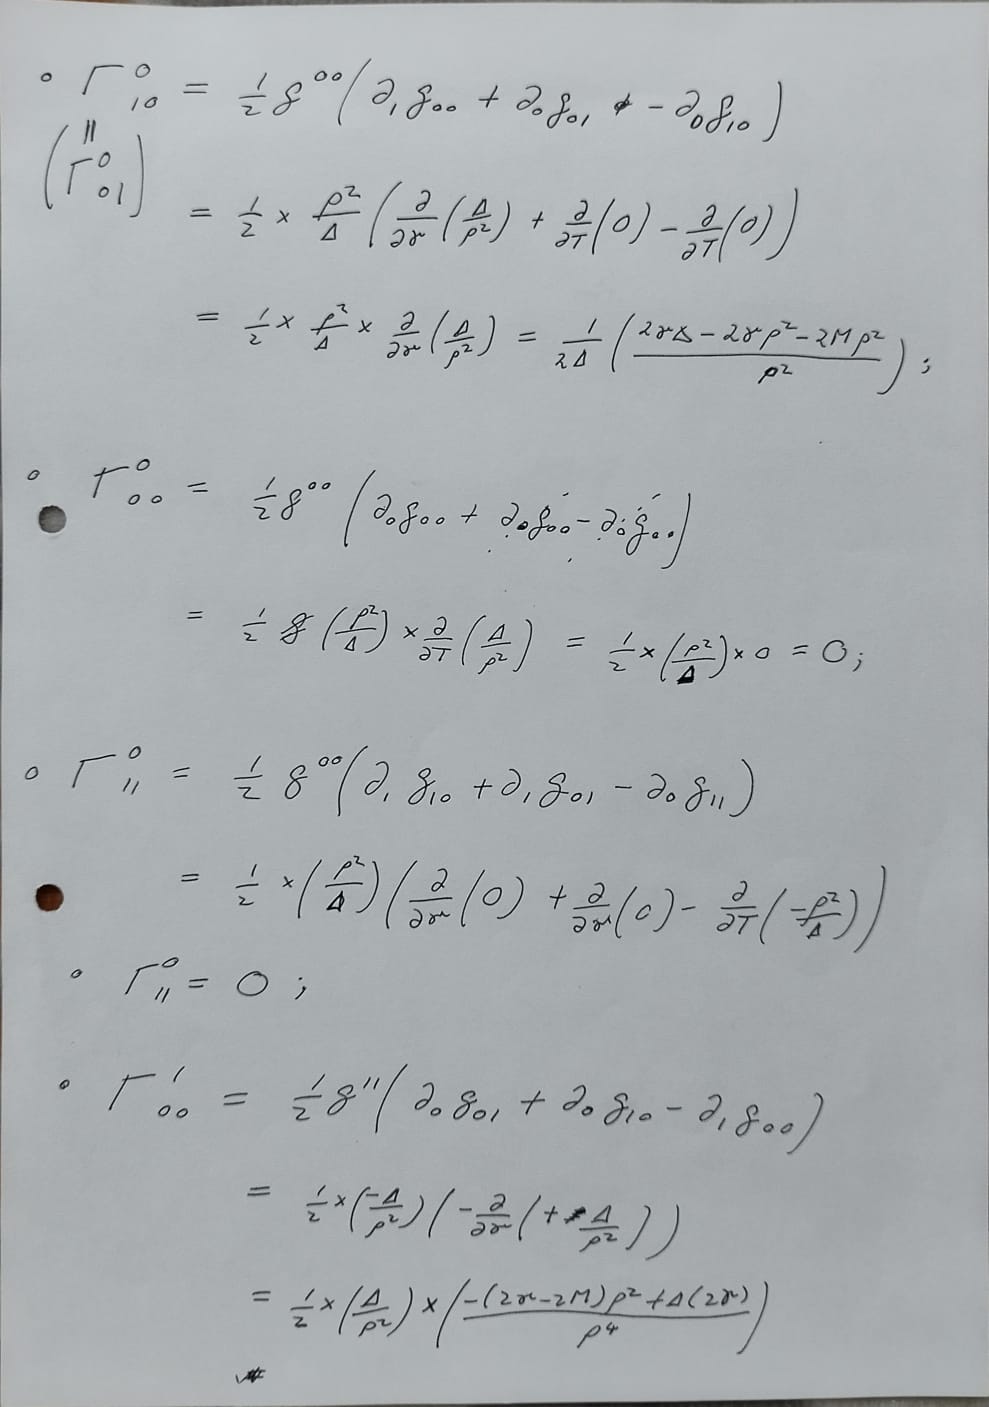 ∘ Γ⁰₁₀ = 1/2 g⁰⁰(∂₁g₀₀ + ∂₀g₀₁ - ∂₀g₁₀)
(ǁ Γ⁰₀₁)
= 1/2 × ρ²/Δ (∂/∂r (Δ/ρ²) + ∂/∂T (0) - ∂/∂T (0))
= 1/2 × ρ²/Δ × ∂/∂r (Δ/ρ²) = 1/2Δ ((2rΔ - 2rρ² - 2Mρ²)/ρ²);
∘ Γ⁰₀₀ = 1/2 g⁰⁰ (∂₀g₀₀ + ∂₀g₀₀ - ∂₀g₀₀)
= 1/2 (ρ²/Δ) × ∂/∂T (Δ/ρ²) = 1/2 × (ρ²/Δ) × 0 = 0;
∘ Γ⁰₁₁ = 1/2 g⁰⁰(∂₁g₁₀ + ∂₁g₀₁ - ∂₀g₁₁)
= 1/2 × (ρ²/Δ)(∂/∂r (0) + ∂/∂r (0) - ∂/∂T (-ρ²/Δ))
∘ Γ⁰₁₁ = 0 ;
∘ Γ¹₀₀ = 1/2 g¹¹(∂₀g₀₁ + ∂₀g₁₀ - ∂₁g₀₀)
= 1/2 × (-Δ/ρ²)(-∂/∂r (+ Δ/ρ²))
= 1/2 × (Δ/ρ²) × ((-(2r-2M)ρ² + Δ(2r))/ρ⁴)